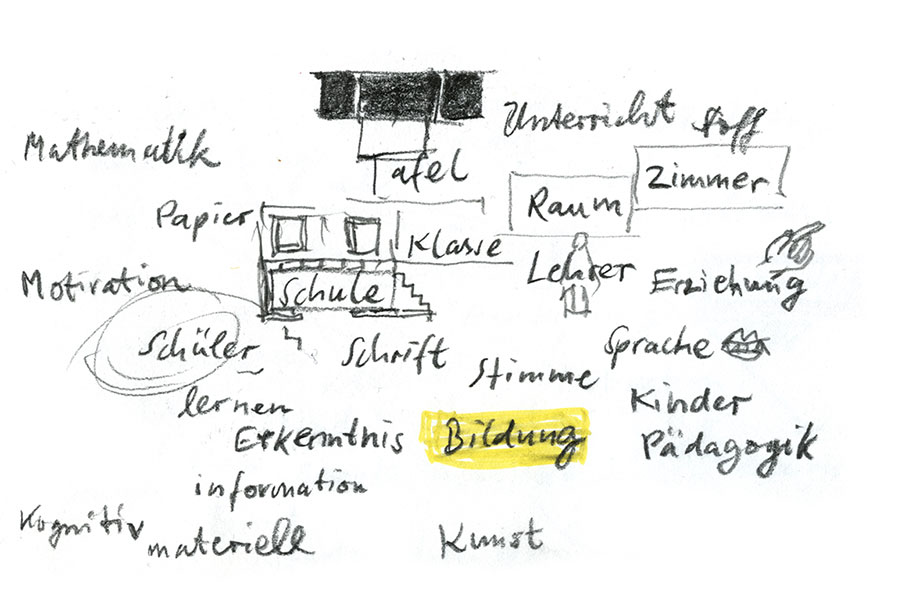 Unterricht Stoff
Mathematik
Tafel
Zimmer
Raum
Papier
Klasse
Lehrer
Erziehung
Motivation
Schule
Schüler
Schrift
Stimme
Sprache
lernen
Kinder
Erkenntnis
Bildung
Pädagogik
information
Kognitiv
materiell
Kunst